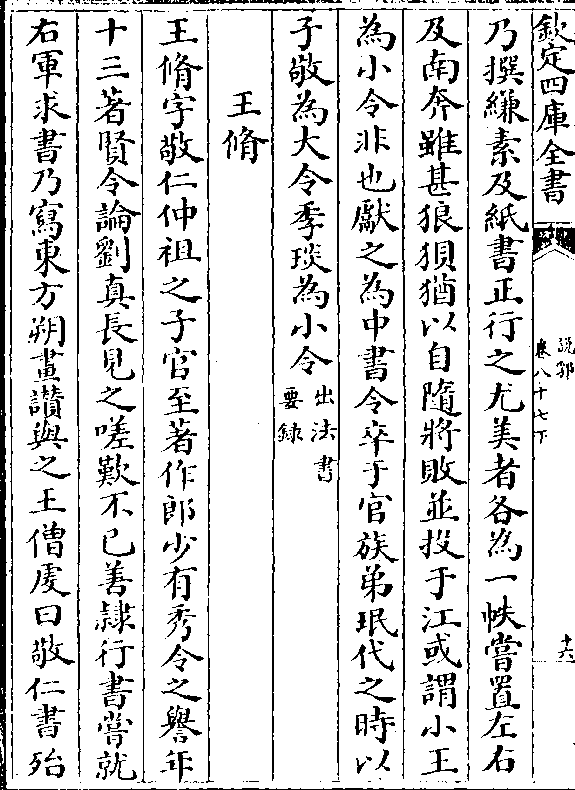 欽定四庫全書
說郛
卷八十七下
十六
乃撰縑素及紙書正行之尤美者各為一帙嘗置左右
及南奔雖甚狼狽猶以自隨將敗並投于江或謂小王
為小令非也獻之為中書令卒于官族弟珉代之時以
子敬為大令季琰為小令出法書要錄
王脩
王脩字敬仁仲祖之子官至著作郎少有秀令之譽年
十三著賢令論劉真長見之嗟歎不已善隷行書嘗就
右軍求書乃寫東方朔畫讃與之王僧虔曰敬仁書殆